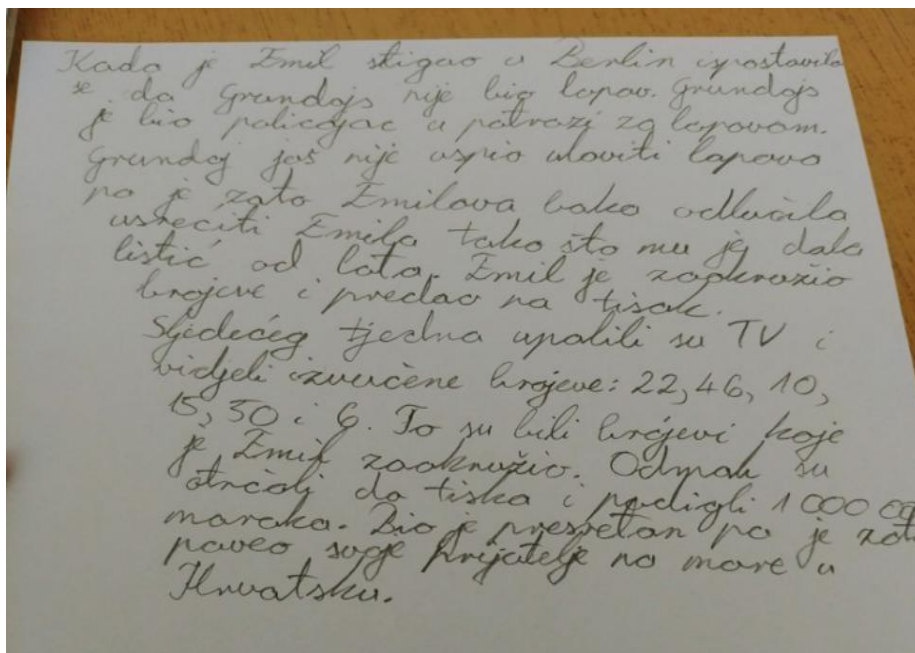 Kada je Emil stigao u Berlin ispostavilo
se da Grundajs nije bio lopov. Grundajs
je bio policajac u potrazi za lopovom.
Grundaj još nije uspio uloviti lopova
pa je zato Emilova baka odlučila
usrećiti Emila tako što mu je dala
listić od lota. Emil je zaokružio
brojeve i predao na tisak.
Sljedećeg tjedna upalili su TV i
vidjeli izvučene brojeve: 22, 46, 10,
15, 30 i 6. To su bili brojevi koje
je Emil zaokružio. Odmah su
otrčali do tiska i podigli 1 000 00
maraka. Bio je presretan pa je zato
poveo svoje prijatelje na more u
Hrvatsku.